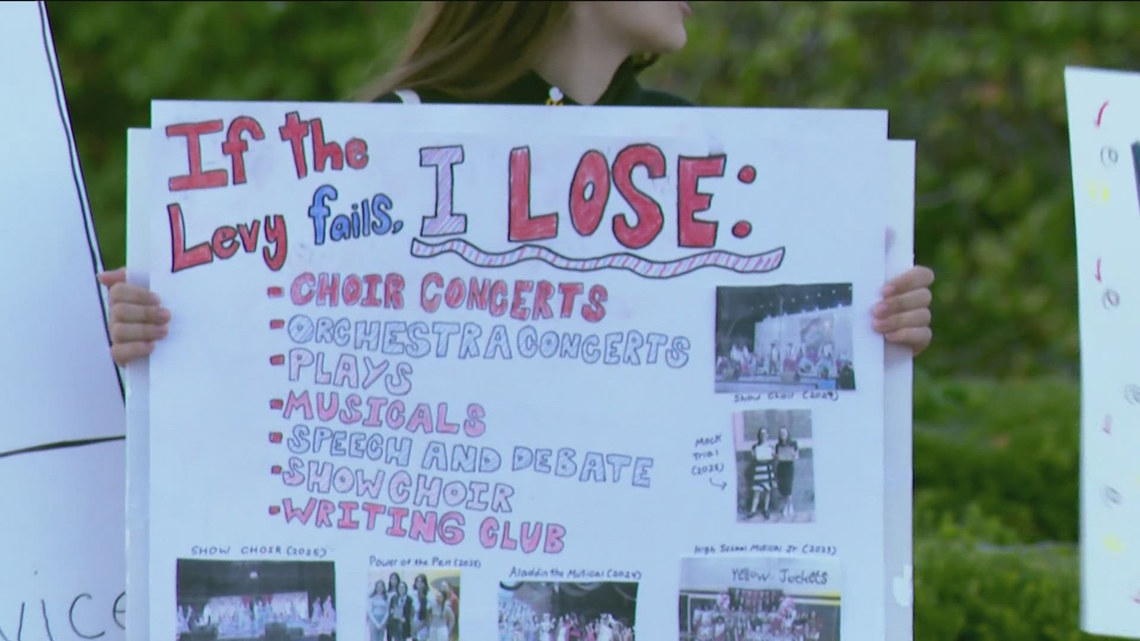 If the
Levy fails,
I LOSE:
- CHOIR CONCERTS
- ORCHESTRA CONCERTS
- PLAYS
- MUSICALS
- SPEECH AND DEBATE
- SHOW CHOIR
- WRITING CLUB
Show Choir (2024)
Mock
Trial
SHOW CHOIR (2025)
Power of the Pen
Aladdin the Musical (2024)
High School Musical Jr (2023)
Yellow Jackets
VICE